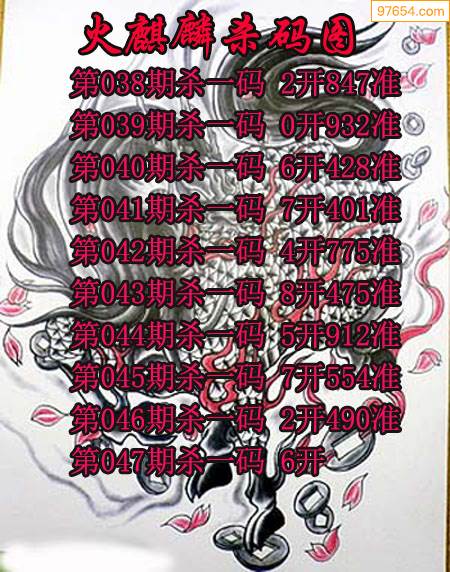 97654.com
火麒麟杀码图
第038期杀一码 2开847准
第039期杀一码 0开932准
第040期杀一码 6开428准
第041期杀一码 7开401准
第042期杀一码 4开775准
第043期杀一码 8开475准
第044期杀一码 5开912准
第045期杀一码 7开554准
第046期杀一码 2开490准
第047期杀一码 6开